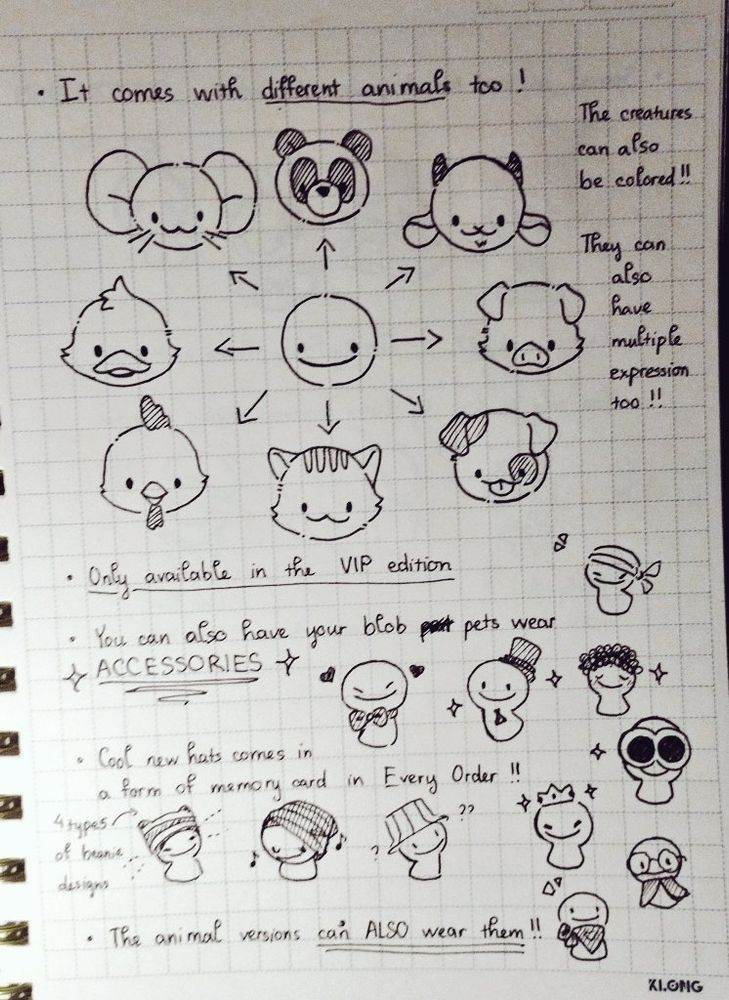 • It comes with different animals too !
The creatures
can also
be colored !!
They can
also
have
multiple
expression
too !!
• Only available in the VIP edition
• You can also have your blob pets wear
ACCESSORIES
• Cool new hats comes in
a form of memory card in Every Order !!
4 types
of beanie
designs
??
?
• The animal versions can ALSO wear them !!
XI.ONG